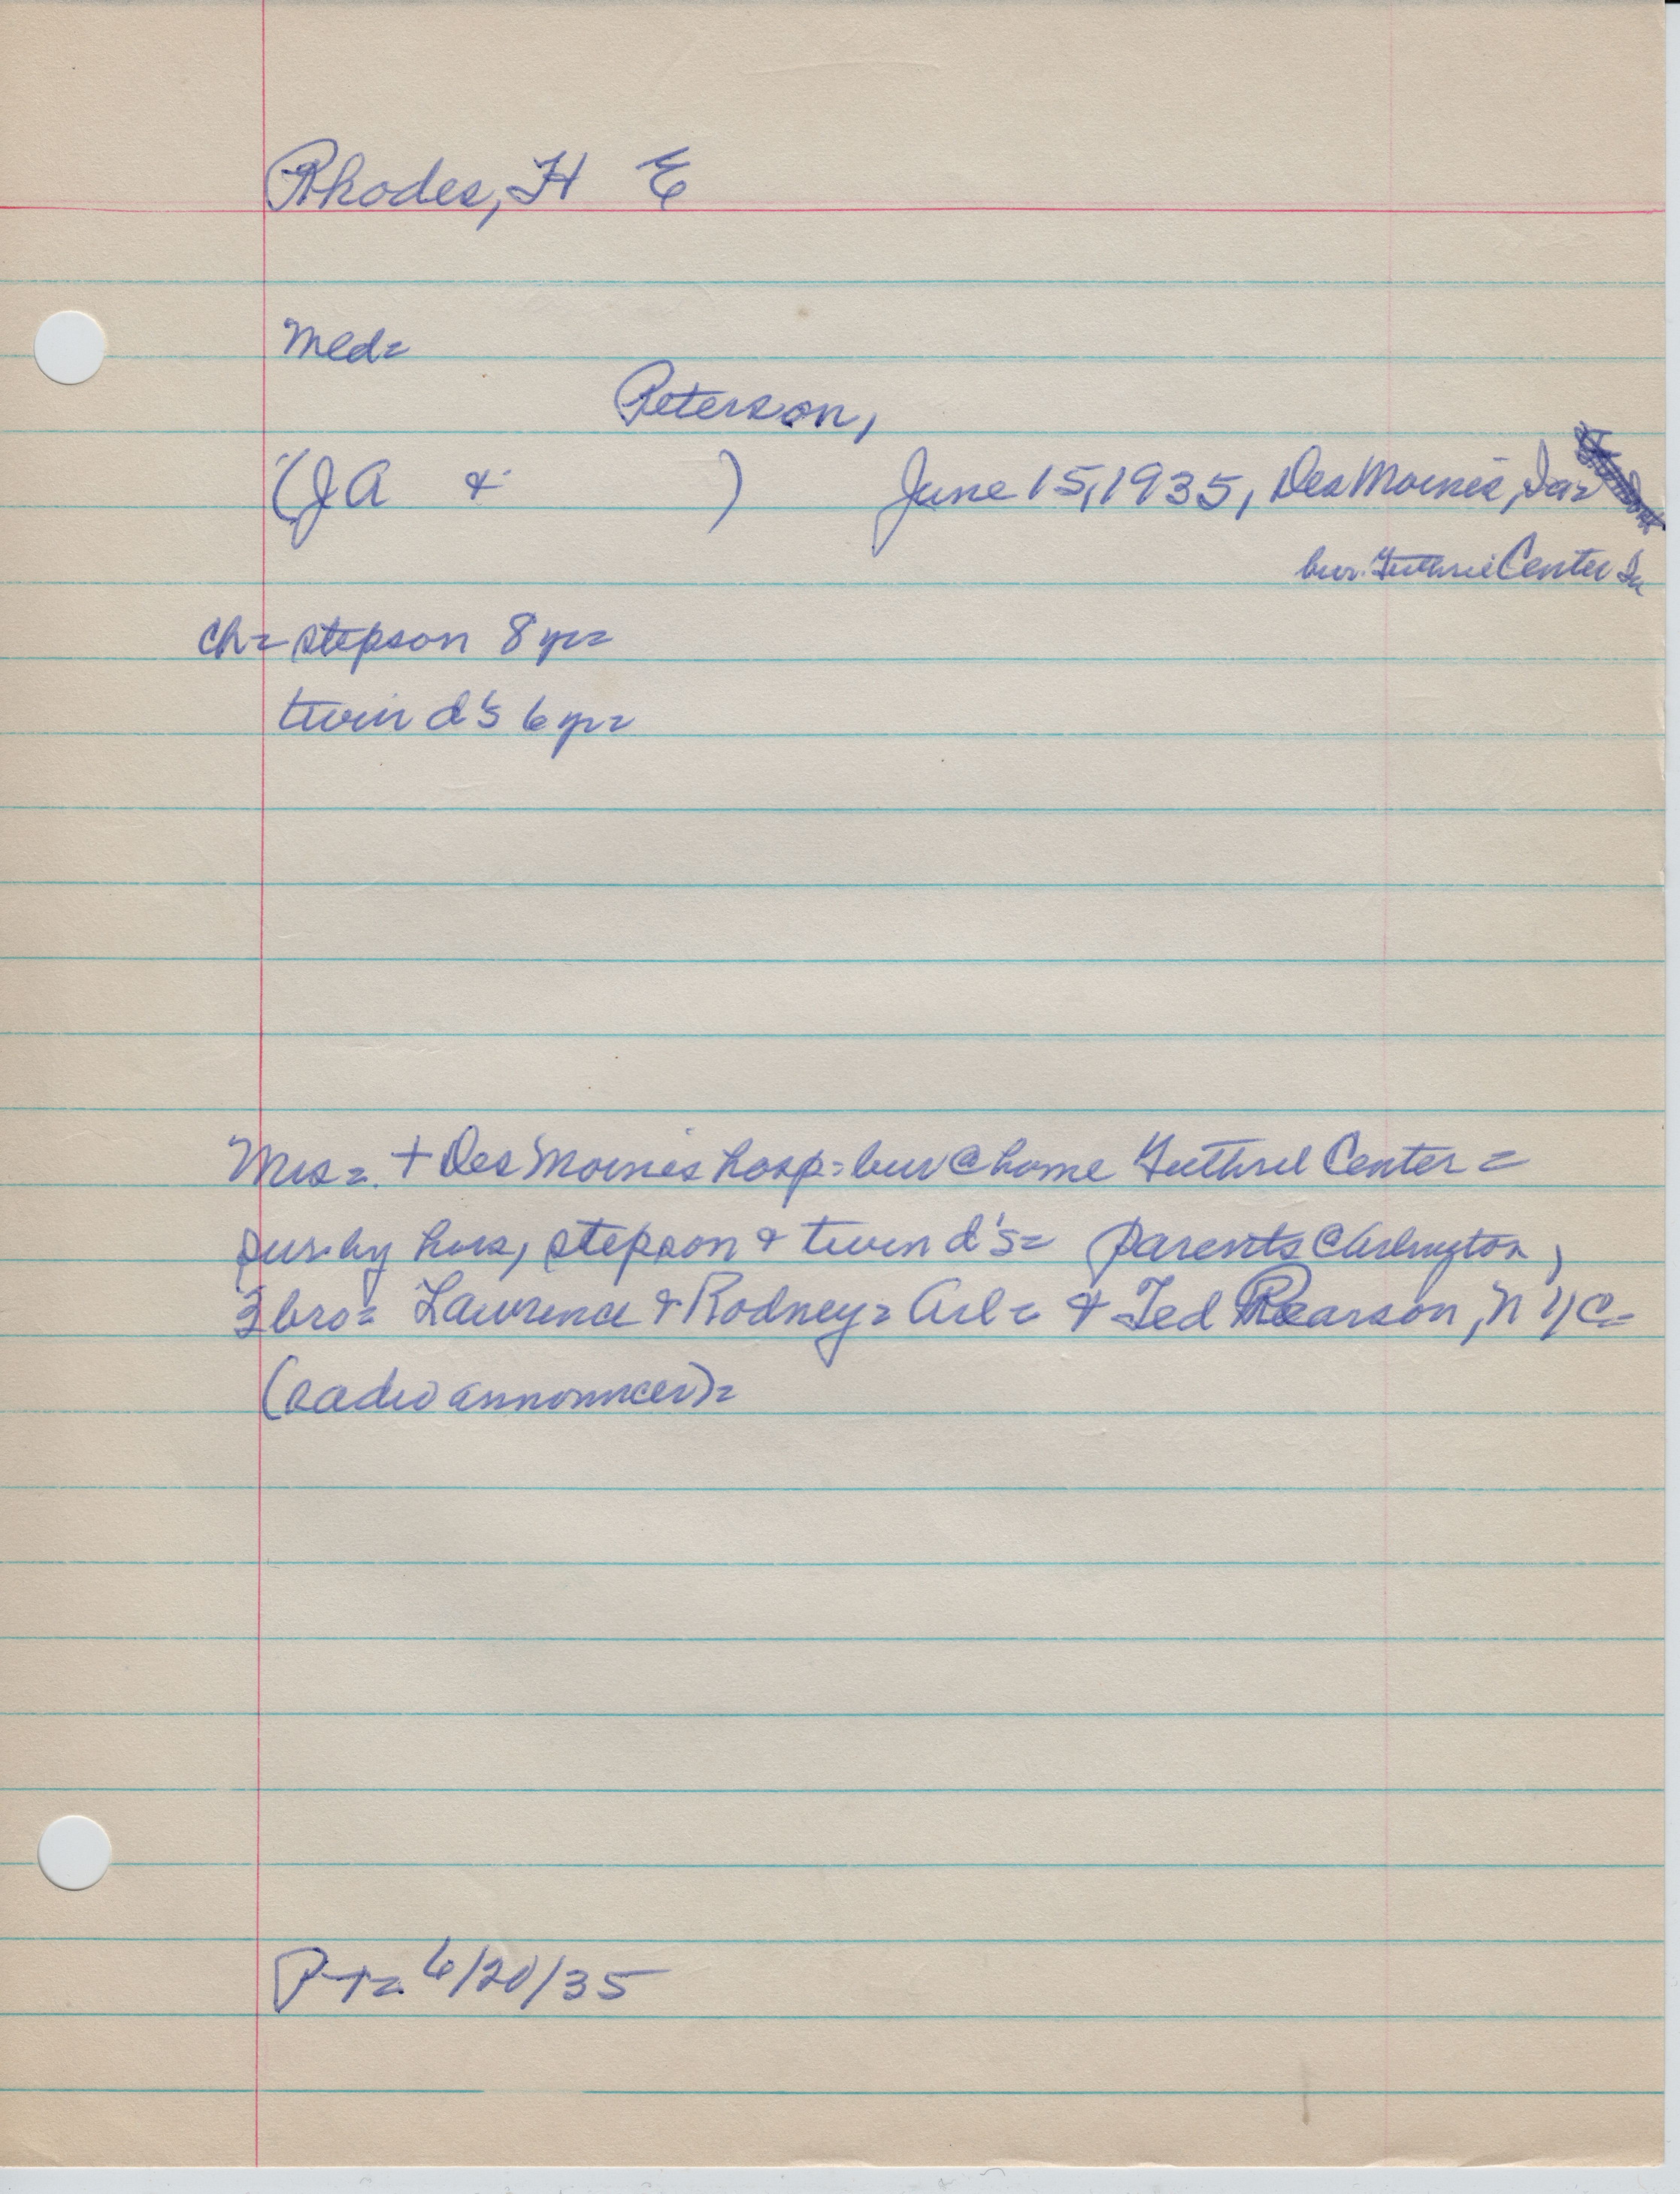 Rhodes, H E
Med=
Peterson,
(JA & ) June 15, 1935, Des Moines, Ia=
bur. Guthrie Center Ia
ch= stepson 8 yr=
twin d's 6 yr=
Mrs=. + Des Moines hosp= bur @ home Guthrie Center =
sur. by hus, stepson & twin d's= parents @ Arlington,
3 bro= Lawrence & Rodney= Arl= & Ted Pearson, N Y C=
(radio announcer)=
P-T= 6/20/35